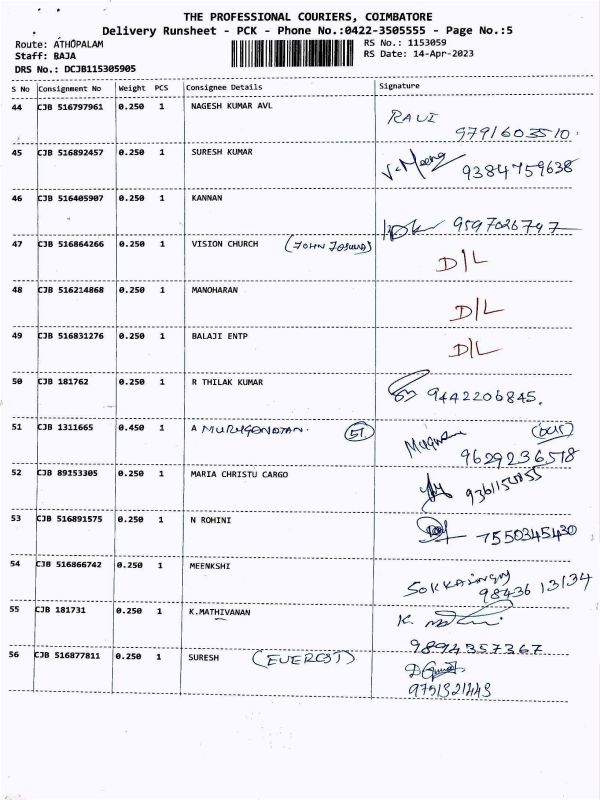 THE PROFESSIONAL COURIERS, COIMBATORE
Delivery Runsheet - PCK - Phone No.:0422-3505555 - Page No.:5
Route: ATHOPALAM RS No.: 1153059
Staff: BAJA RS Date: 14-Apr-2023
DRS No.: DCJB115305905
S No Consignment No Weight PCS Consignee Details Signature
44 CJB 516797961 0.250 1 NAGESH KUMAR AVL RAVI
9791603510.
45 CJB 516892457 0.250 1 SURESH KUMAR 9384759638
46 CJB 516405907 0.250 1 KANNAN
9597026747
47 CJB 516864266 0.250 1 VISION CHURCH (JOHN JOSUVA) D/L
48 CJB 516214868 0.250 1 MANOHARAN D/L
49 CJB 516831276 0.250 1 BALAJI ENTP D/L
50 CJB 181762 0.250 1 R THILAK KUMAR 9442206845.
51 CJB 1311665 0.450 1 A MURUGANOTAN.
9629236518
52 CJB 89153305 0.250 1 MARIA CHRISTU CARGO
53 CJB 516891575 0.250 1 N ROHINI 7550345430
54 CJB 516866742 0.250 1 MEENKSHI
98436 13134
55 CJB 181731 0.250 1 K.MATHIVANAN K.
9894357367
56 CJB 516877811 0.250 1 SURESH (EVEREST)